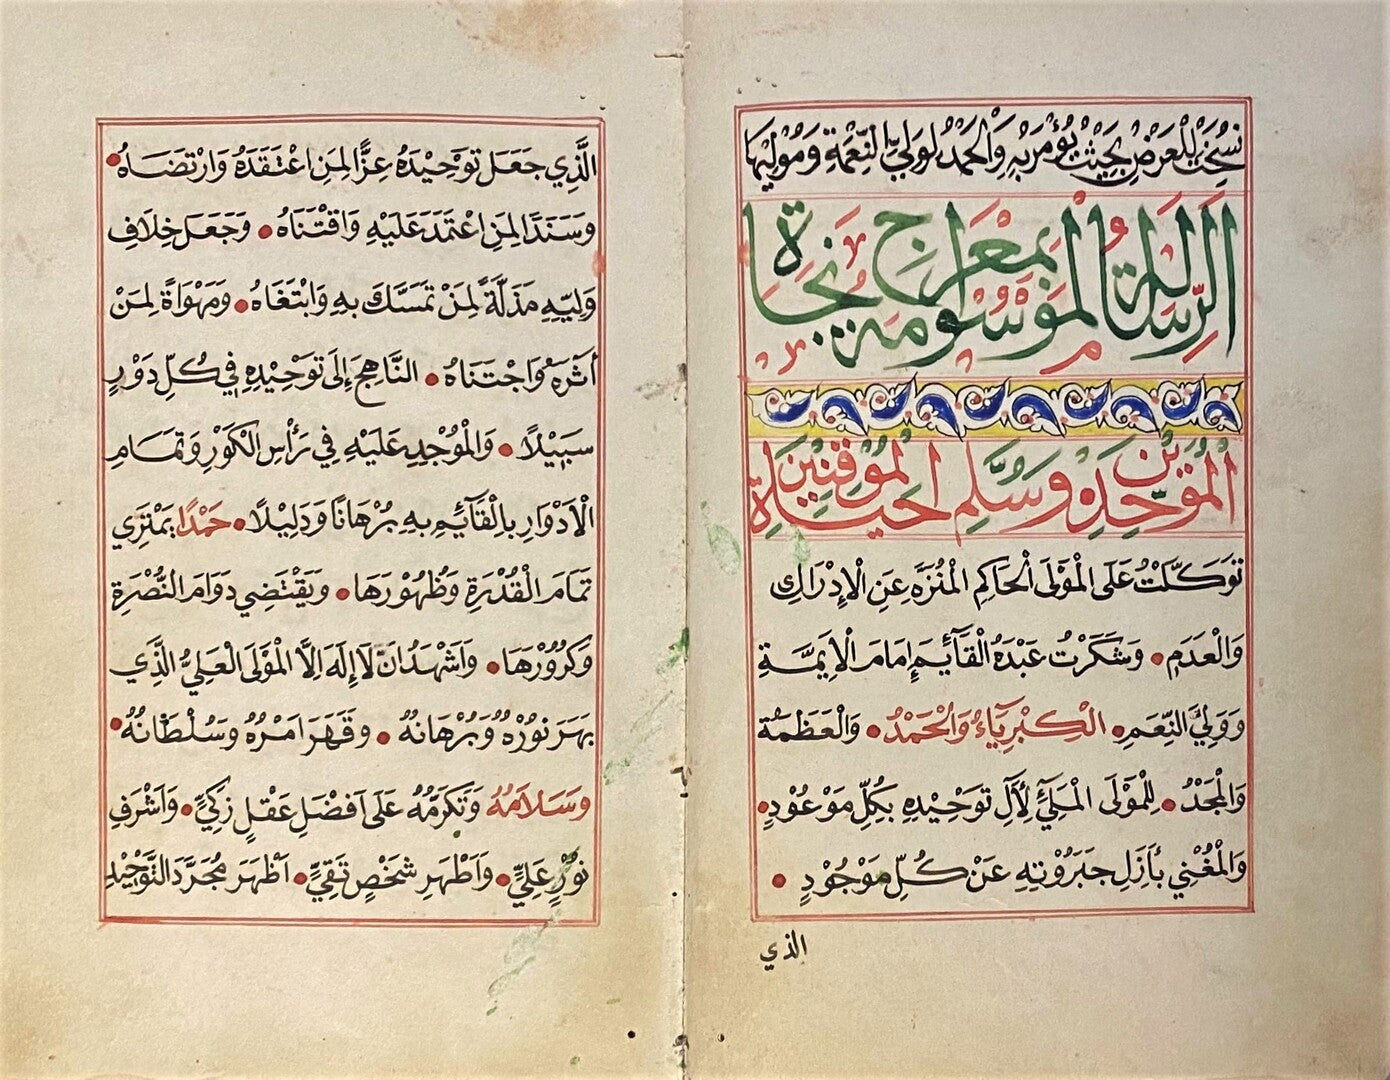 نُسِخَتْ لِلْعَرْضِ بِحَيْثُ يُؤْمَرُ بِهِ وَالْحَمْدُ لِوَلِيِّ النِّعْمَةِ وَمُوْلِيْهَا
اَلرِّسَالَةُ الْمَوْسُوْمَة بِمِعْرَاجِ نَجَاة
الْمُوَحِّدِيْنَ وَسُلَّمِ حَيَاةِ الْمُوْقِنِيْنَ
تَوَكَّلْتُ عَلَى الْمَوْلَى الْحَاكِمِ الْمُنَزَّهِ عَنِ الْاِدْرَاكِ
وَالْعَدَمِ • وَشَكَرْتُ عَبْدَهُ الْقَآئِمَ اِمَامَ الْاَئِمَّةِ
وَوَلِيَّ النِّعَمِ • الْكِبْرِيَآءُ وَالْحَمْدُ • وَالْعَظَمَةُ
وَالْمَجْدُ • لِلْمَوْلَى الْمَلِيِّ لِآلِ تَوْحِيْدِهِ بِكُلِّ مَوْعُوْدٍ •
وَالْمُغْنِي بِأَزَلِ جَبَرُوْتِهِ عَنْ كُلِّ مَوْجُوْدٍ •
الذي
الَّذِي جَعَلَ تَوْحِيْدَهُ عِزًّا لِمَنِ اعْتَقَدَهُ وَارْتَضَاهُ •
وَسَنَدًا لِمَنِ اعْتَمَدَ عَلَيْهِ وَاقْتَنَاهُ • وَجَعَلَ خِلَافِ
وَلِيِّهِ مَذَلَّةً لِمَنْ تَمَسَّكَ بِهِ وَابْتَغَاهُ • وَمَهْوَاةً لِمَنْ
أَثَرَهُ وَاجْتَنَاهُ • النَّاهِجِ إِلَى تَوْحِيْدِهِ فِي كُلِّ دَوْرٍ
سَبِيْلًا • وَالْمُوْجِدِ عَلَيْهِ فِي رَأْسِ الْكَوْرِ وَتَمَامِ
الْاَدْوَارِ بِالْقَآئِمِ بِهِ بُرْهَانًا وَدَلِيْلًا • حَمْدًا يَمْتَرِي
تَمَامَ الْقُدْرَةِ وَظُهُوْرَهَا • وَيَقْتَضِي دَوَامَ النُّصْرَةِ
وَكُرُوْرَهَا • وَاَشْهَدُ اَنْ لَا إِلَهَ اِلَّا الْمَوْلَى الْعَلِيُّ الَّذِي
بَهَرَ نُوْرُهُ وَبُرْهَانُهُ • وَقَهَرَ اَمْرُهُ وَسُلْطَانُهُ •
وَسَلَامُهُ وَتَكَرُّمُهُ عَلَى اَفْضَلِ عَقْلٍ زَكِيٍّ • وَاَشْرَفِ
نُوْرٍ عَلِيٍّ • وَاَطْهَرِ شَخْصٍ تَقِيٍّ • اَظْهَرَ مُجَرَّدَ التَّوْحِيْدِ